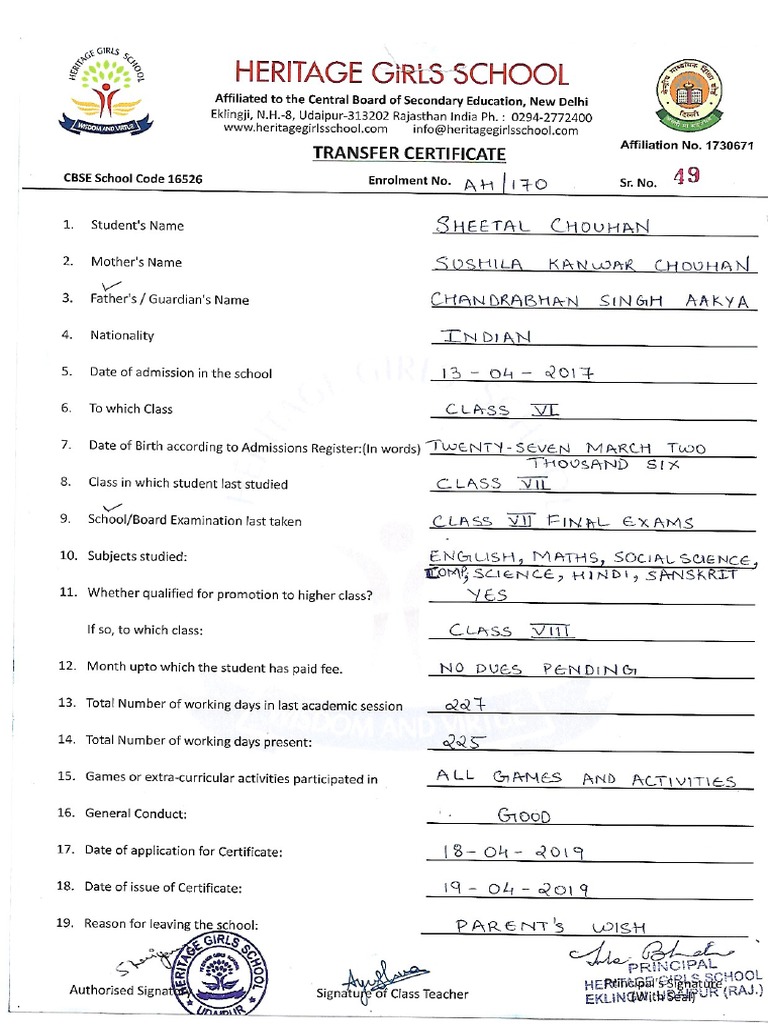 HERITAGE GIRLS SCHOOL
WISDOM AND VIRTUE
HERITAGE GIRLS SCHOOL
Affiliated to the Central Board of Secondary Education, New Delhi
Eklingji, N.H.-8, Udaipur-313202 Rajasthan India Ph. : 0294-2772400
www.heritagegirlsschool.com info@heritagegirlsschool.com
TRANSFER CERTIFICATE
Affiliation No. 1730671
CBSE School Code 16526 Enrolment No. AH/170 Sr. No. 49
1. Student's Name SHEETAL CHOUHAN
2. Mother's Name SUSHILA KANWAR CHOUHAN
3. Father's / Guardian's Name CHANDRABHAN SINGH AAKYA
4. Nationality INDIAN
5. Date of admission in the school 13-04-2017
6. To which Class CLASS VI
7. Date of Birth according to Admissions Register:(In words) TWENTY-SEVEN MARCH TWO
THOUSAND SIX
8. Class in which student last studied CLASS VII
9. School/Board Examination last taken CLASS VII FINAL EXAMS
10. Subjects studied: ENGLISH, MATHS, SOCIAL SCIENCE,
COMP, SCIENCE, HINDI, SANSKRIT
11. Whether qualified for promotion to higher class? YES
If so, to which class: CLASS VIII
12. Month upto which the student has paid fee. NO DUES PENDING
13. Total Number of working days in last academic session 227
14. Total Number of working days present: 225
15. Games or extra-curricular activities participated in ALL GAMES AND ACTIVITIES
16. General Conduct: GOOD
17. Date of application for Certificate: 18-04-2019
18. Date of issue of Certificate: 19-04-2019
19. Reason for leaving the school: PARENT'S WISH
HERITAGE GIRLS SCHOOL
UDAIPUR
Authorised Signatory
Signature of Class Teacher
PRINCIPAL
HERITAGE GIRLS SCHOOL
EKLINGJI, UDAIPUR (RAJ.)
Principal's Signature
(With Seal)